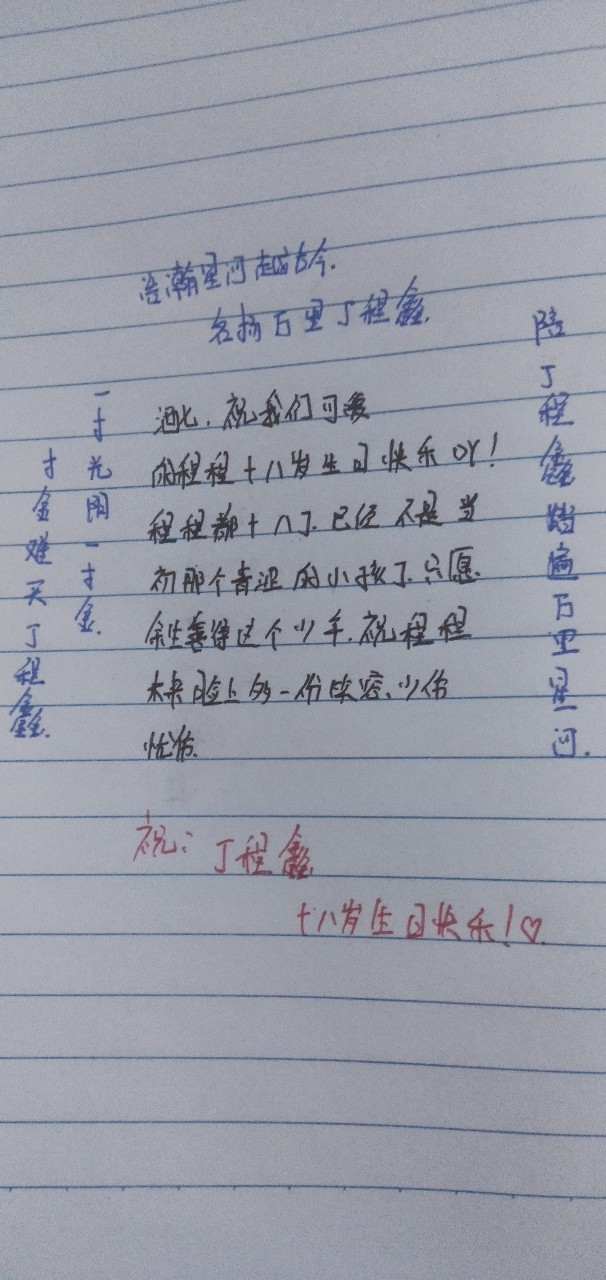 浩瀚星河越古今.
名扬万里丁程鑫.
一寸光阴一寸金.
寸金难买丁程鑫.
陪丁程鑫踏遍万里星河.
祝我们可爱
的程程十八岁生日快乐吖!
程程都十八了.已经不是当
初那个青涩的小孩了.只愿
余生善待这个少年.祝程程
未来脸上多一份笑容、少份
忧伤.
祝:丁程鑫
十八岁生日快乐!♡.